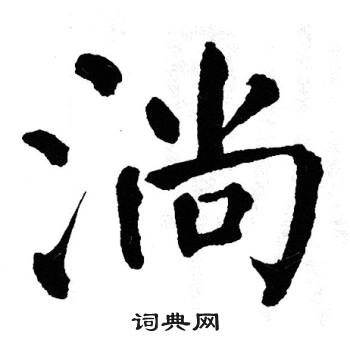 淌
词典网